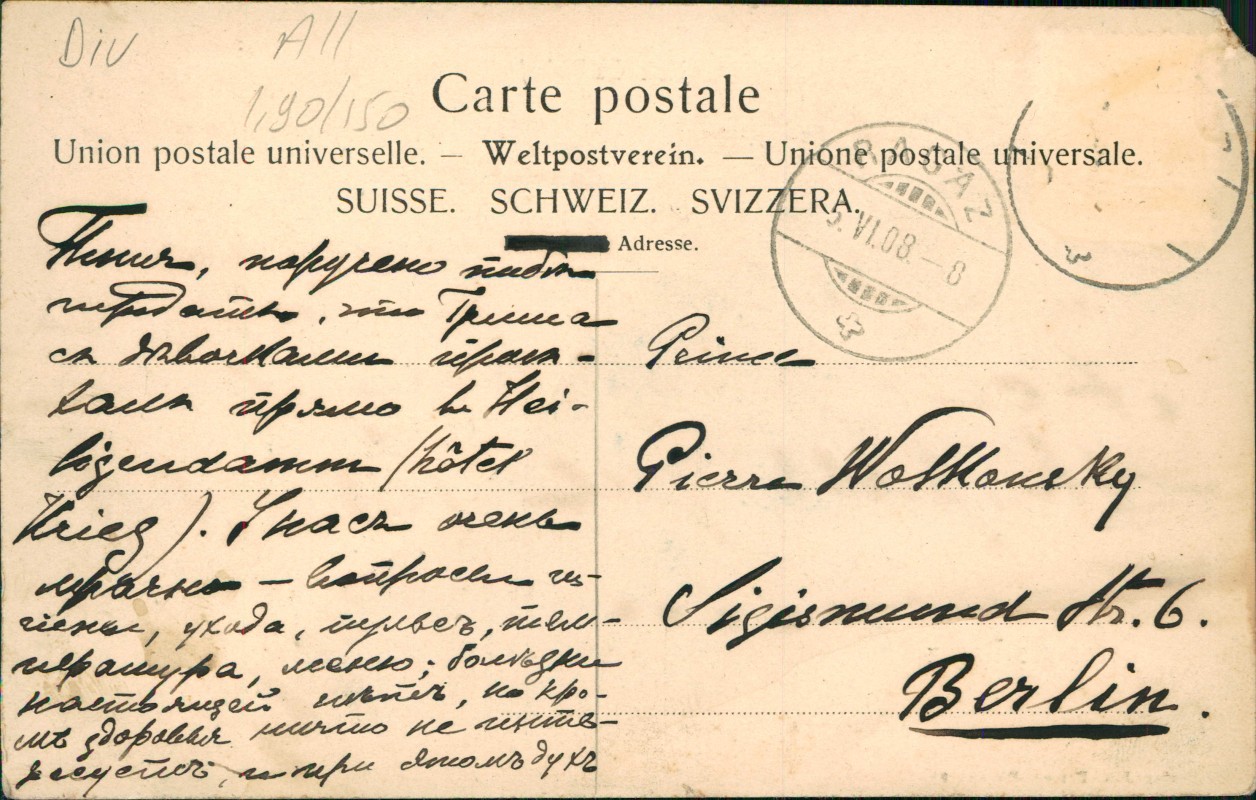 Div All
1,90/150
Carte postale
Union postale universelle. — Weltpostverein. — Unione postale universale.
SUISSE. SCHWEIZ. SVIZZERA.
Adresse.
RAGAZ
5.VI.08.–8
поручено тебѣ
передать, что Гриша
съ дѣвочками проѣ-
хали прямо въ Hei-
ligendamm (hôtel
Krieg). У насъ очень
мрачно – вопросы ги-
гіены, ухода, пульсъ, тем-
пература, меню; болѣзни
настоящей нѣтъ, но кро-
мѣ здоровья ничто не инте-
ресуетъ, и при этомъ духъ
Prince
Pierre Wolkonsky
Sigismund Str. 6.
Berlin.